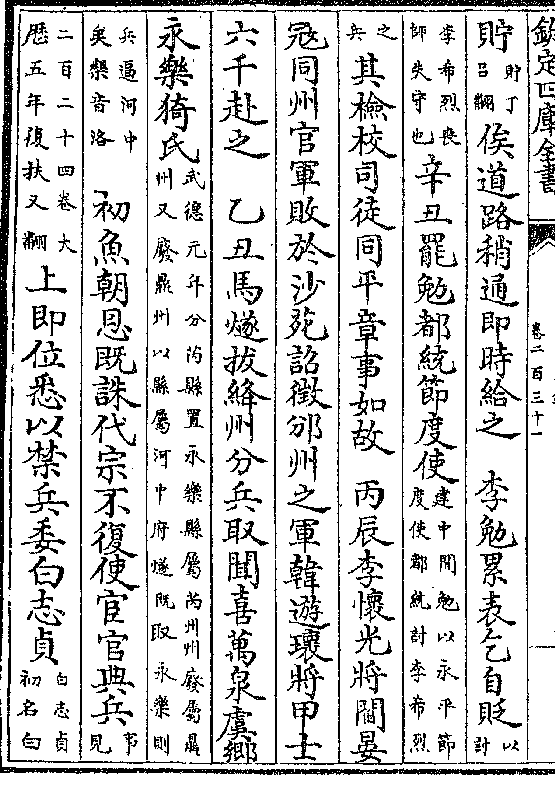 欽定四庫全書
卷二百三十一
貯貯丁呂翻俟道路稍通即時給之　李勉累表乞自貶以討
李希烈喪師失守也辛丑罷勉都統節度使建中間勉以永平節度使都統討李希烈
之兵其檢校司徒同平章事如故　丙辰李懷光將閻晏
寇同州官軍敗於沙苑詔徵邠州之軍韓遊瓌將甲士
六千赴之　乙丑馬燧拔絳州分兵取聞喜萬泉虞鄉
永樂猗氏武德元年分芮縣置永樂縣屬芮州州廢屬鼎州又廢鼎州以縣屬河中府燧既取永樂則
兵逼河中矣樂音洛　初魚朝恩既誅代宗不復使宦官典兵事見
二百二十四卷大歷五年復扶又翻上即位悉以禁兵委白志貞白志貞初名白